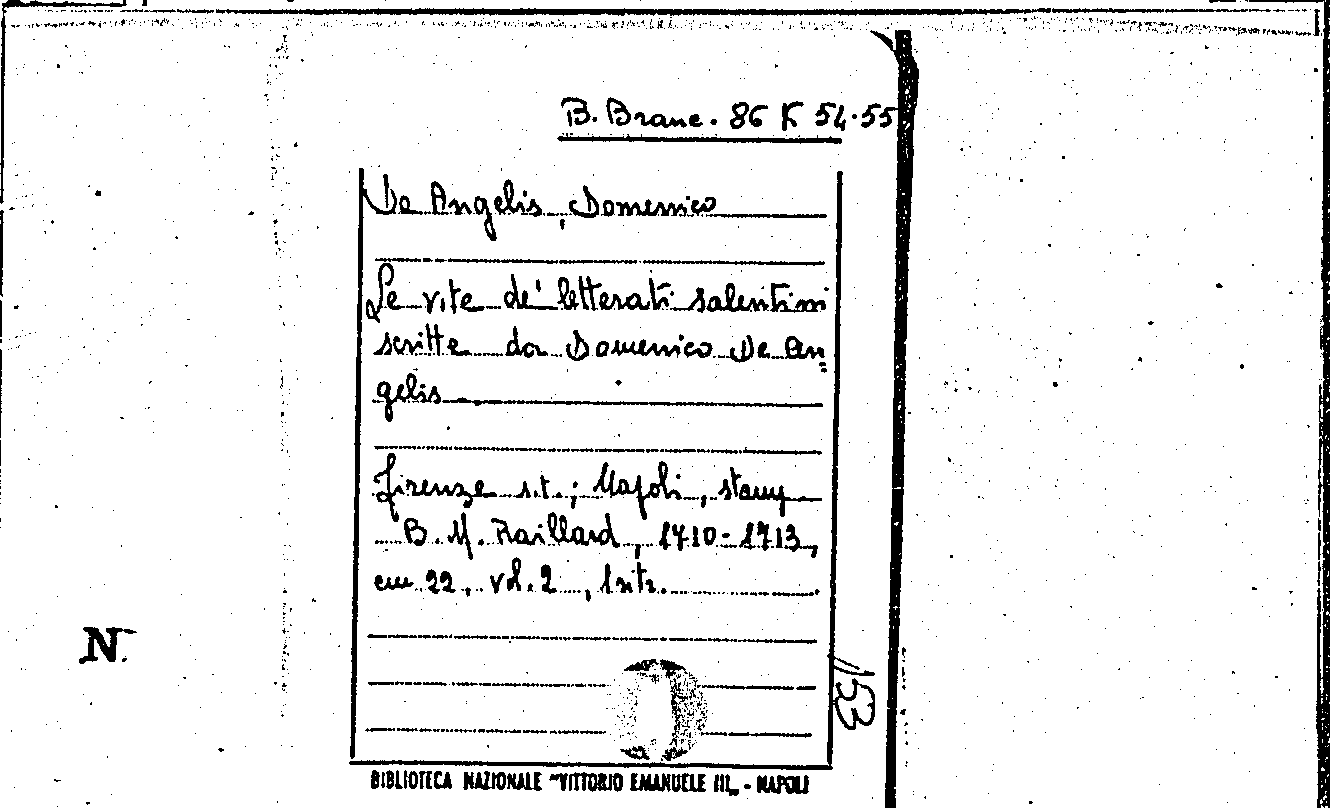 B. Branc. 86 K 54-55
De Angelis, Domenico
Le vite de' letterati salentini
scritte da Domenico De An=
gelis
Firenze s.t.; Napoli, stamp
B. M. Raillard, 1710-1713,
cm 22, vol. 2, 1 ritr.
N.
153
BIBLIOTECA NAZIONALE "VITTORIO EMANUELE III„ - NAPOLI